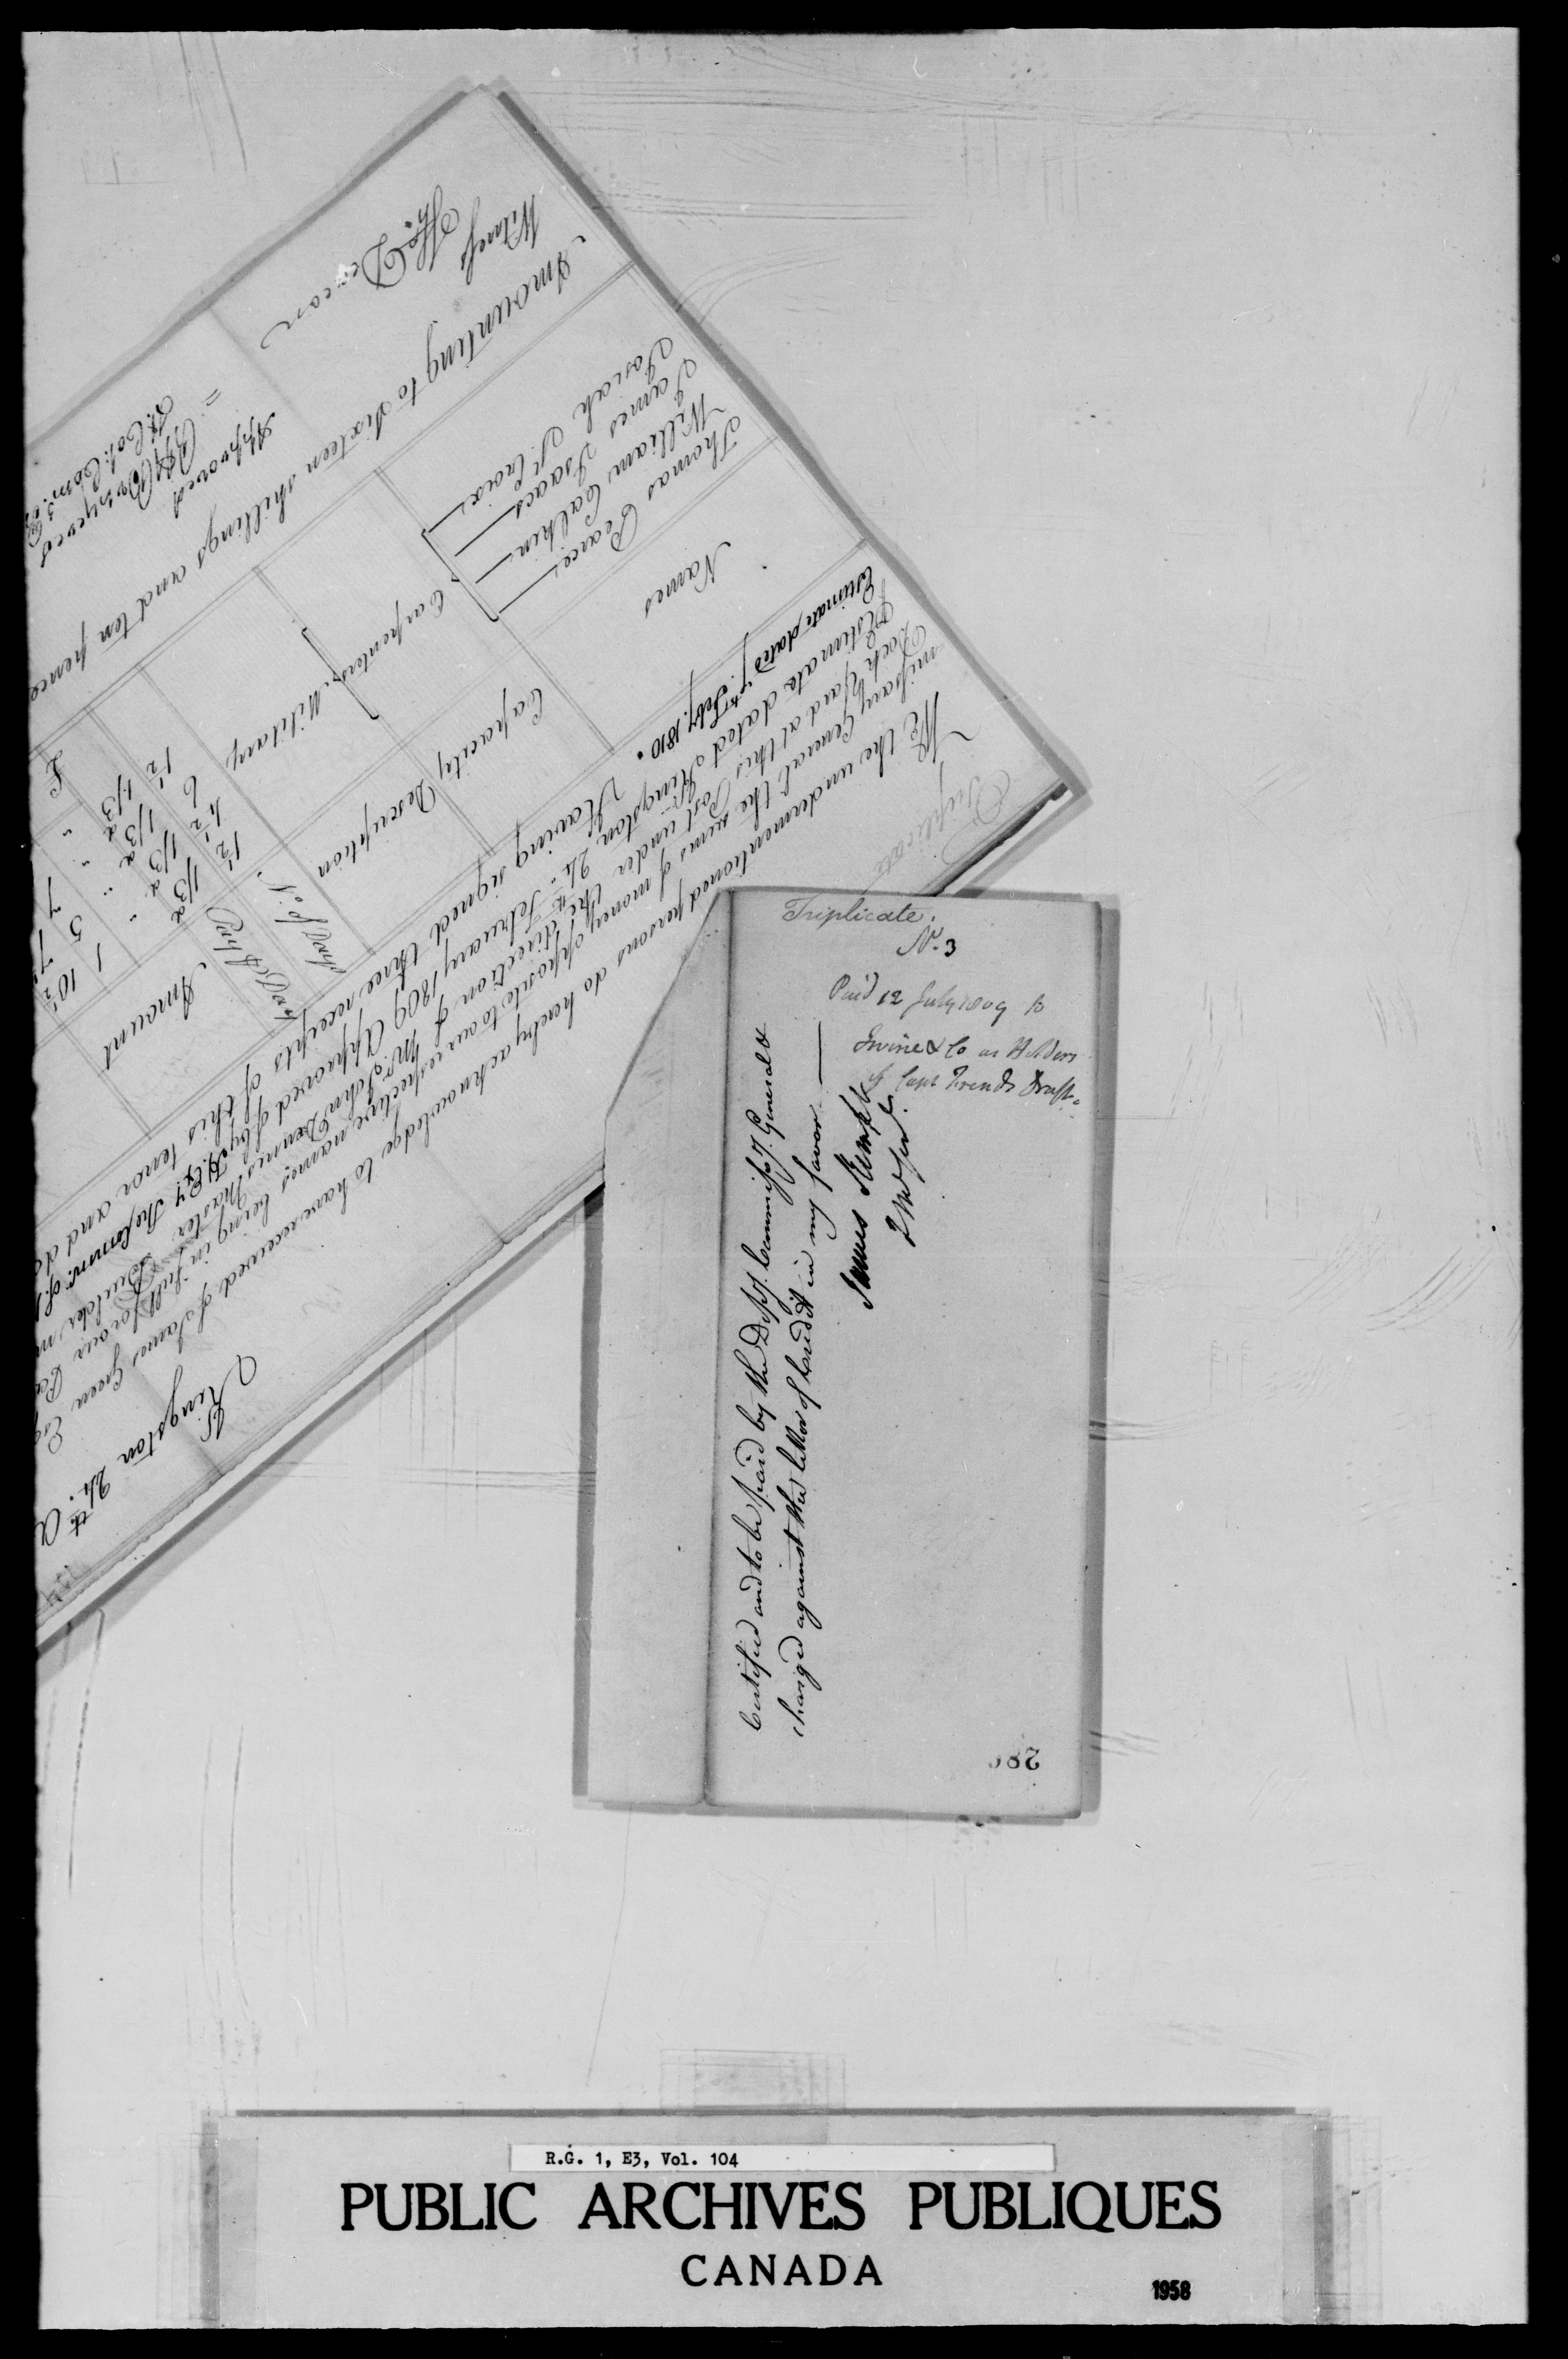 Triplicate.
No. 3
Paid 12 July 1809 to
Irvine & Co as Holders
of Capt Trends Draft.
Certified and to be paid by the Depy. Commissy. General &
charged against the letter of Credit in my favor
James
286
Triplicate
Kingston 24th. A
We the undermentioned persons do hereby acknowledge to have received of James Green Esq
missary General the sums of money opposite to our respective names being in full for our
Dock Yard at this Post under the direction of Mr. John Dennis Master Builder
Estimate dated Kingston 24th. February 1809 Approved of by H. Ex.y The Comm.r of
Estimate dated Feby. 1810. Having signed three receipts of this tenor and
Names
Capacity
Description
No. of Days
Pay
Amount
£
Thomas Pearce
William Calkin
James Isaacs
Josiah St. Croix
Carpenters
Military
1½ 1/3d " 1 10½
4½ 1/3d " 5 7½
6 1/3d " 7
1½ 1/3
Amounting to Sixteen shillings and ten pence
Witness
Thos. Deacon
Approved
Lt. Col. Com.
R.G. 1, E3, Vol. 104
PUBLIC ARCHIVES PUBLIQUES
CANADA
1958